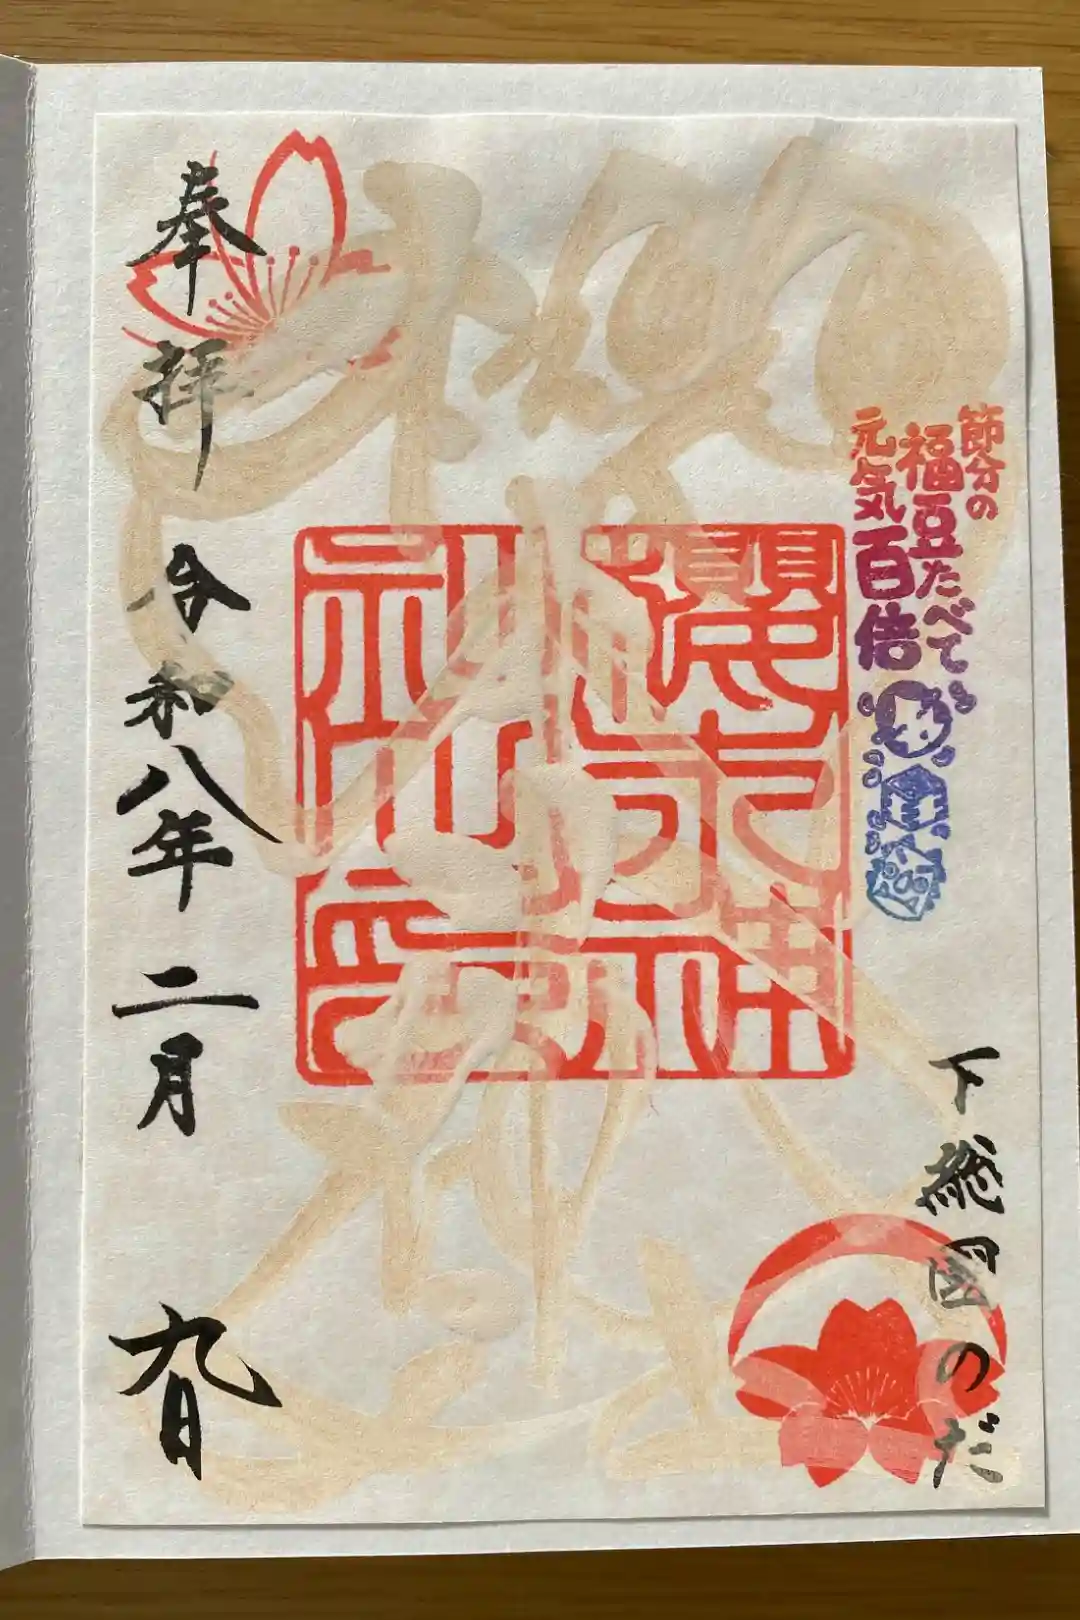 節分の
福豆たべて
元気百倍
下総国のだ
櫻木
奉拝 令和八年二月九日